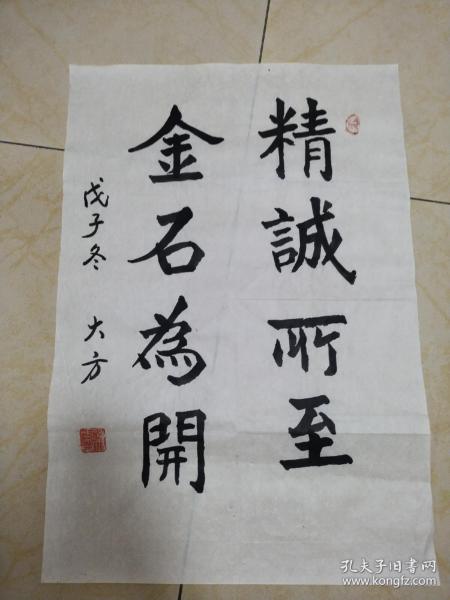 精誠所至
金石為開
戊子冬 大方
孔夫子旧书网
www.kongfz.com